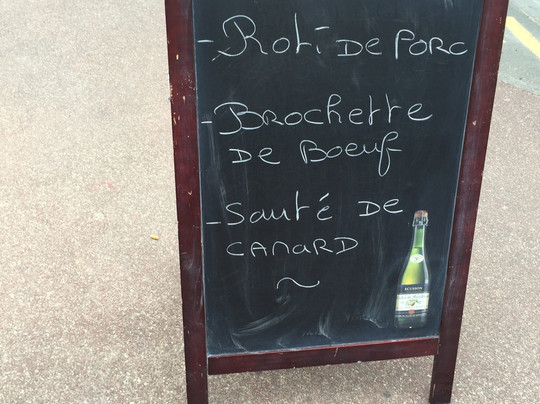 - Roti de Porc
- Brochette
de Boeuf
- Sauté de
canard
~
ECUSSON